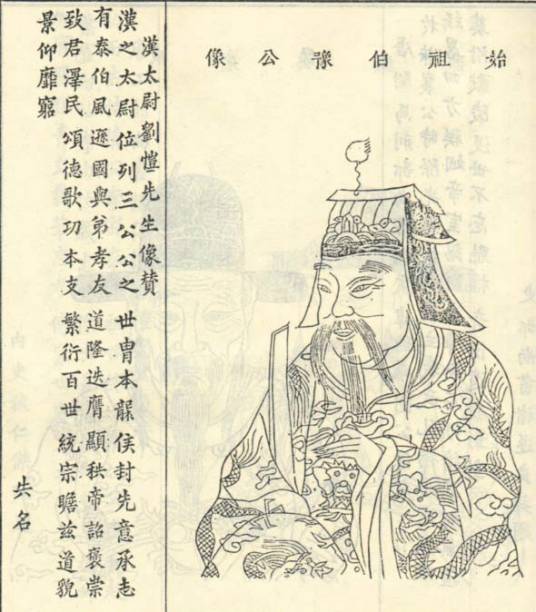 始祖伯豫公像
漢太尉劉愷先生像贊
漢之太尉位列三公公之世胄本襲侯封先意承志
有泰伯風遜國與弟孝友道隆迭膺顯秩帝詔褒崇
致君澤民頌德歌功本支繁衍百世統宗瞻兹道貌
景仰靡窮
失名